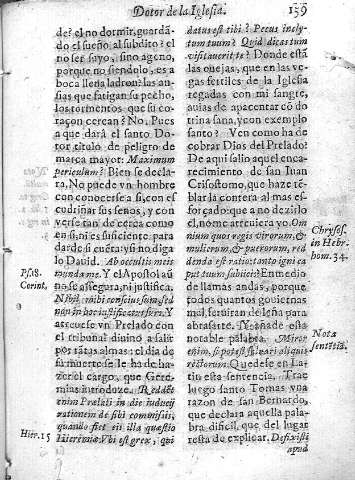 Dotor de la Iglesia. 139
de? el no dormir, guardã-
do el sueño al subdito? el
no ser suyo, sino ageno,
porque no siendolo, es a
boca llena ladron? las an-
sias que fatigan su pecho,
los tormentos que su co-
raçon cercan? No. Pues
a que dará el santo Do-
tor titulo de peligro de
marca mayor: Maximum
periculum? Bien se decla-
ra, No puede vn hombre
con conocerse a si, con es-
cudriñar sus senos, y con
verse tan de cerro en cer-
ro, si es suficiente para
darse si cuẽta, y so no digalo
lo Dauid. Ab occultis meis
munda me. Y el Apostol aũ
no se assegura, ni justifica.
Nihil mihi conscius sum, sed
non in hoc iustificatus sum. Y
atreuese vn Prelado con
el tribunal diuino a salir
por tãtas almas: el dia de
su muerte se le ha de ha-
zer el cargo, que Gere-
mias introduze. Reddẽt
enim Prælati in die iudicij
rationem de sibi commissis,
quando fiet eis illa quæstio
Hieremiæ. Vbi est grex, qui
Psal. 18.
Corint.
Hier. 15
datus est tibi? Pecus inclytum
tuum? Quid dices cum
visitauerit te? Donde està
las ouejas, que en las ve-
gas fertiles de la Iglesia
regadas con mi sangre,
auias de apacentar cõ do-
trina sana, y con exemplo
santo? Veen como ha de
cobrar Dios del Prelado?
De aqui salio aquel enca-
recimiento de san Iuan
Crisostomo, que haze tẽ-
blar la contera al mas es-
forçado: que a no dezirlo
el, no me atreuiera yo. Om-
nium quos regis virorum, &
mulierum, & puerorum, red-
denda est ratio: tanto igni ca
put tuum subiicis? En medio
de llamas andays, porque
todos quantos gouiernas
mal, seruiran de leña para
abrasarte. Y añade esta
notable palabra. Miror
enim, si potest saluari aliquis
rectorum. Quedese en La-
tin esta sentencia. Trae
luego santo Tomas vna
razon de san Bernardo,
que declara aquella pala-
bra dificil, que del lugar
resta de explicar, Defixisti
apud
Chrysos.
in Hebr.
hom. 34.
Nota
sentẽtia.